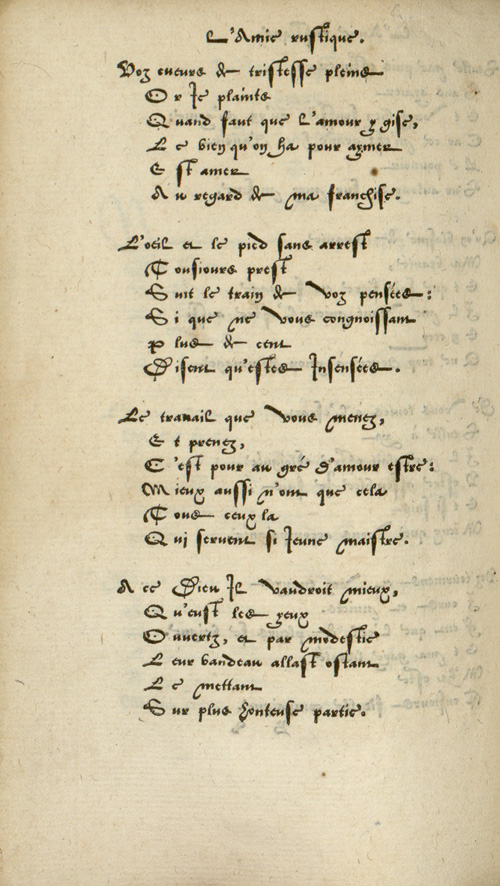 L'Amie rustique.
Voz cueurs de tristesse pleins
Or Je plaints
Quand faut que l'amour y gise,
Le bien qu'on ha pour aymer
Est amer
Au regard de ma franchise.
L'oeil et le pied sans arrest
Tousiours prest
Suit le train de voz pensées:
Si que ne vous congnoissant
Plus de cent
Disent qu'estes Insensées.
Le travail que vous menez,
Et prenez,
C'est pour au gré d'amour estre:
Mieux aussi n'ont que cela
Tous ceux la
Qui servent si Jeune maistre.
A ce Dieu Il vaudroit mieux,
Qu'eust les yeux
Ouvertz, et par modestie
Leur bandeau allast ostant
Le mettant
Sur plus honteuse partie.